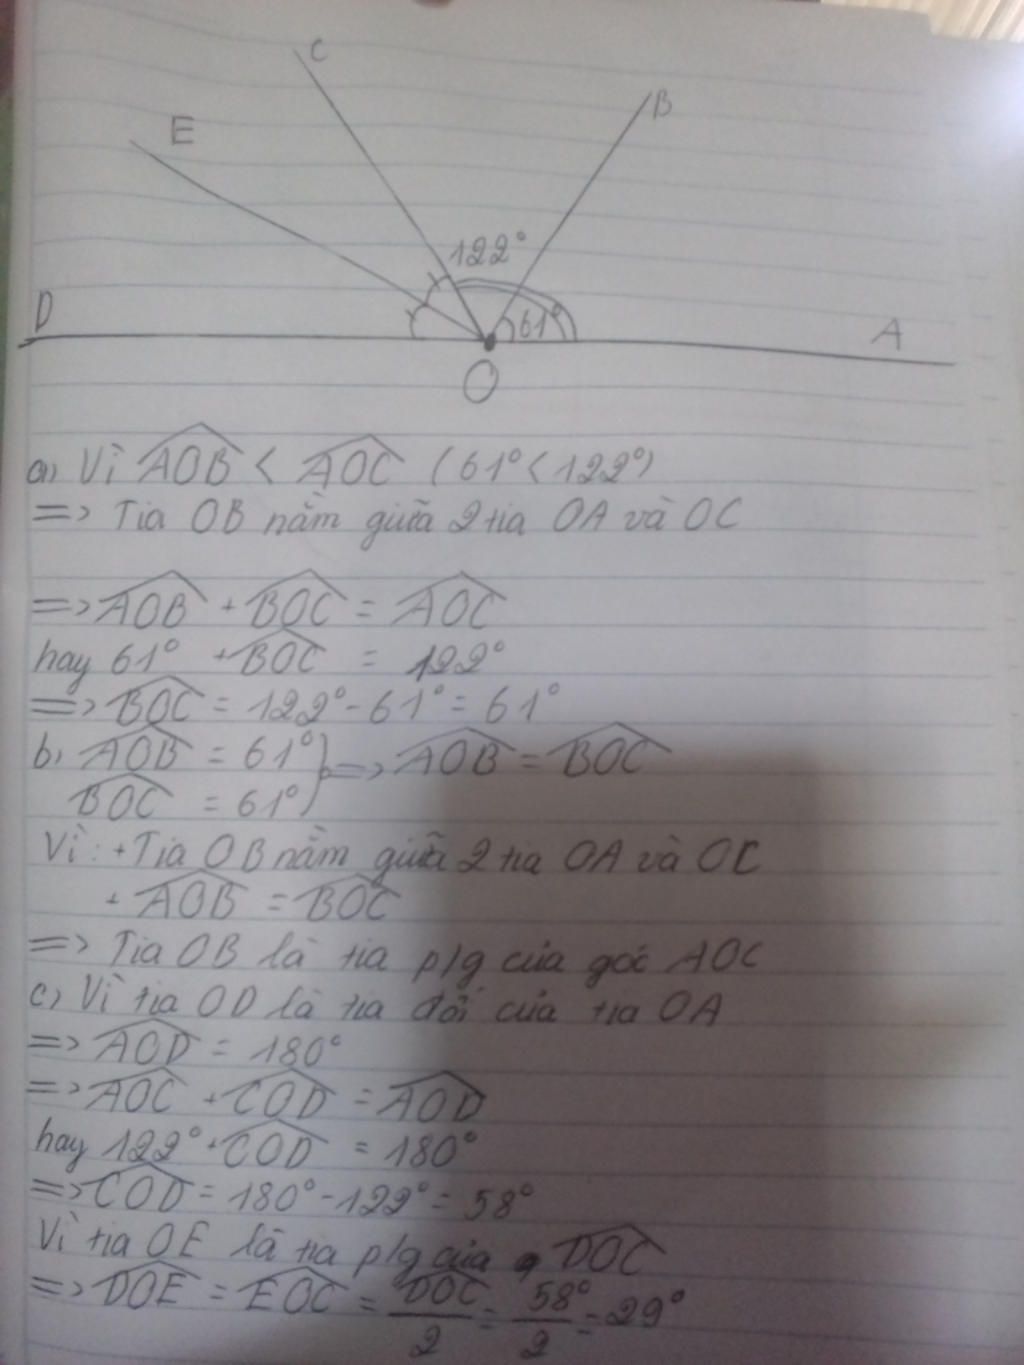 C
B
E
122°
D
61°
A
O
a) Vì AOB < AOC (61° < 122°)
=> Tia OB nằm giữa 2 tia OA và OC
=> AOB + BOC = AOC
hay 61° + BOC = 122°
=> BOC = 122° - 61° = 61°
b) AOB = 61° } => AOB = BOC
BOC = 61°
Vì: + Tia OB nằm giữa 2 tia OA và OC
+ AOB = BOC
=> Tia OB là tia p/g của góc AOC
c) Vì tia OD là tia đối của tia OA
=> AOD = 180°
=> AOC + COD = AOD
hay 122° + COD = 180°
=> COD = 180° - 122° = 58°
Vì tia OE là tia p/g của DOC
=> DOE = EOC = DOC/2 = 58°/2 = 29°